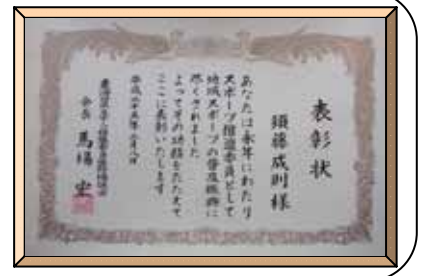 表彰状
須藤成則様
あなたは永年にわたり
スポーツ推進委員として
地域スポーツの普及振興に
尽くされました
よってその功績をたたえて
ここに表彰いたします
平成二十五年二月八日
会長 馬場 宏